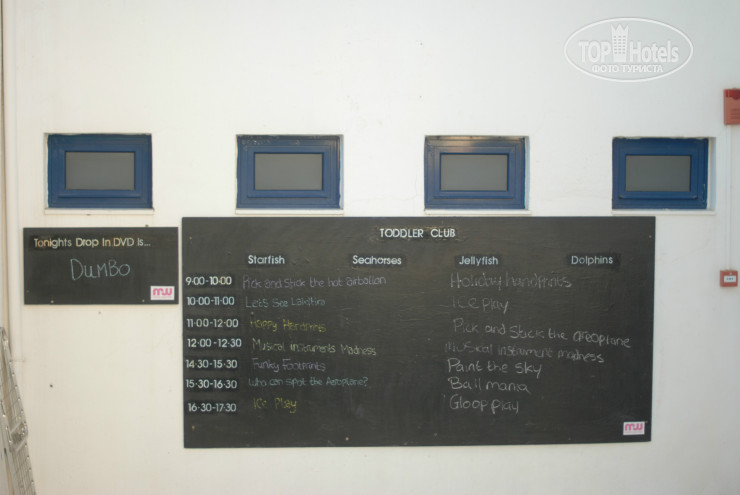 TOP Hotels
ФОТО ТУРИСТА
Tonights Drop In DVD Is...
DUMBO
mw
TODDLER CLUB
Starfish Seahorses Jellyfish Dolphins
9-00-10-00 Pick and Stick the hot airballon Holiday handprints
10-00-11-00 Lets Sea ICE play
11-00-12-00 Happy Pick and Stick the areoplane
12-00-12-30 Musical Instruments Madness Musical instrument madness
14-30-15-30 Funky Footprints Paint the sky
15-30-16-30 Who can spot the Aeroplane? Ball mania
16-30-17-30 ICE Play Gloop play
mw